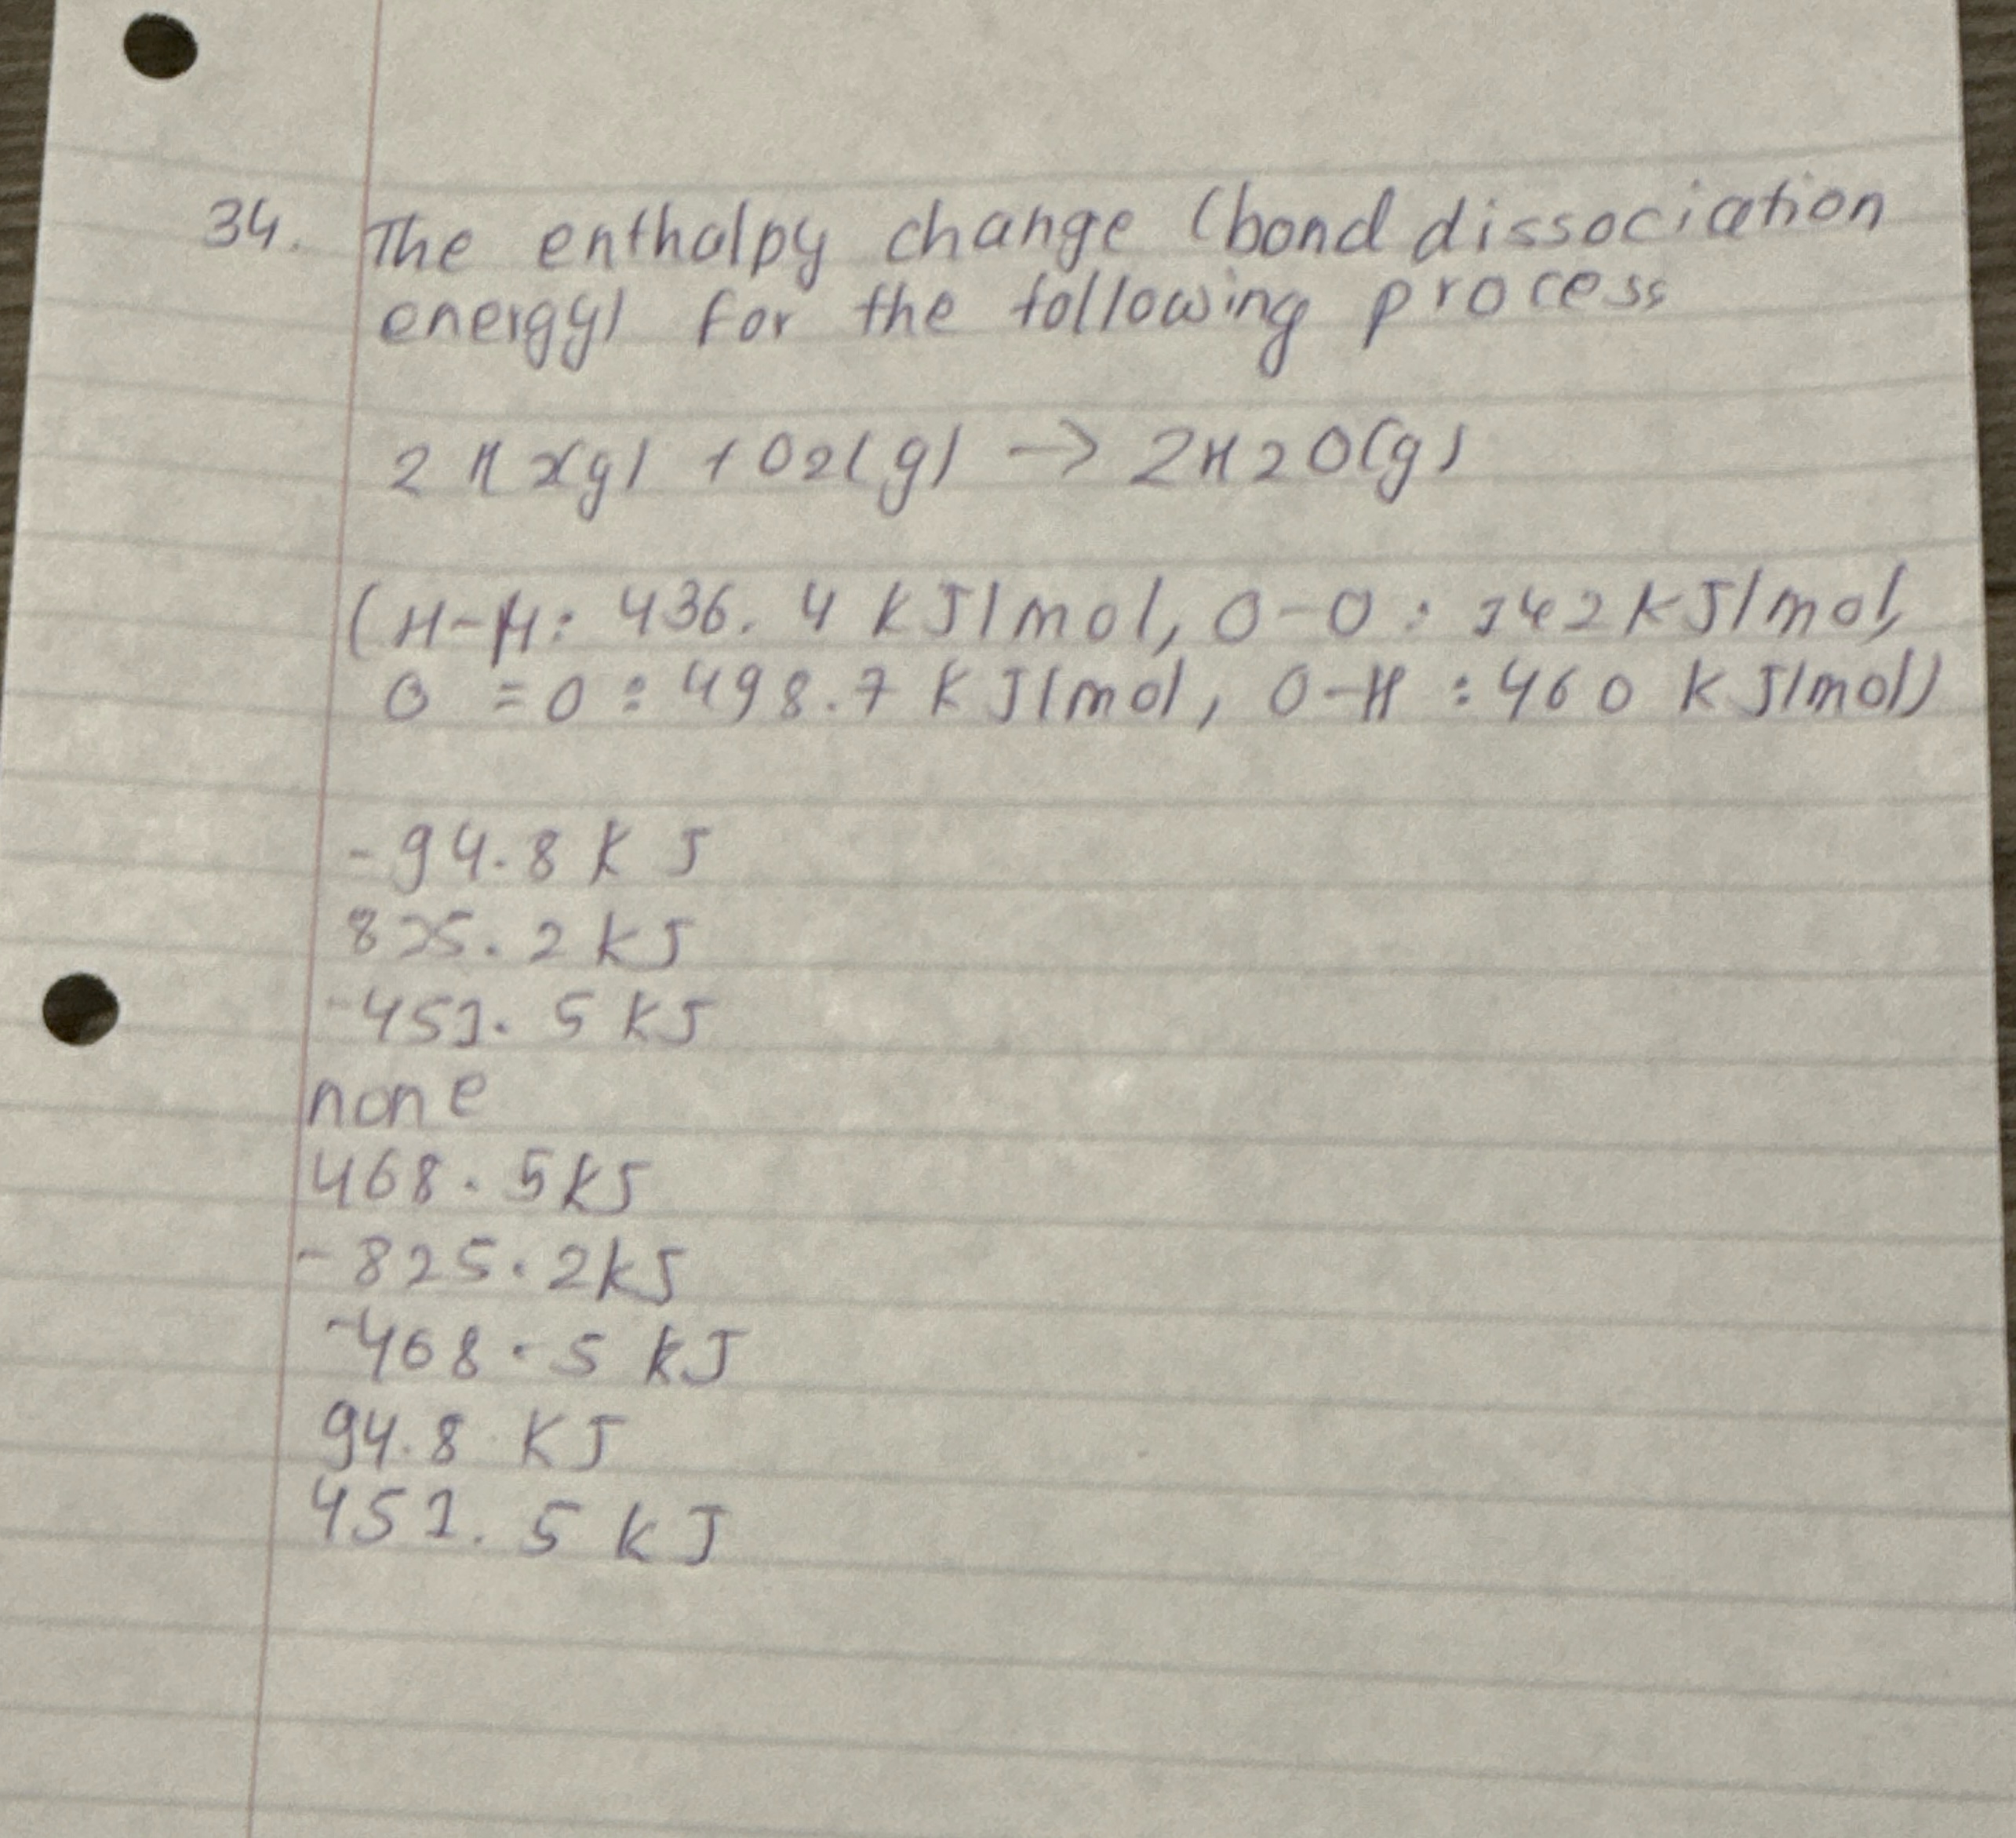 34. The enthalpy change (bond dissociation
energy) for the following process
2H2(g) + O2(g) → 2H2O(g)
(H-H: 436.4 kJ/mol, O-O: 142 kJ/mol,
O=O: 498.7 kJ/mol, O-H: 460 kJ/mol)
-94.8 kJ
825.2 kJ
-451.5 kJ
none
468.5 kJ
-825.2 kJ
-468.5 kJ
94.8 kJ
451.5 kJ